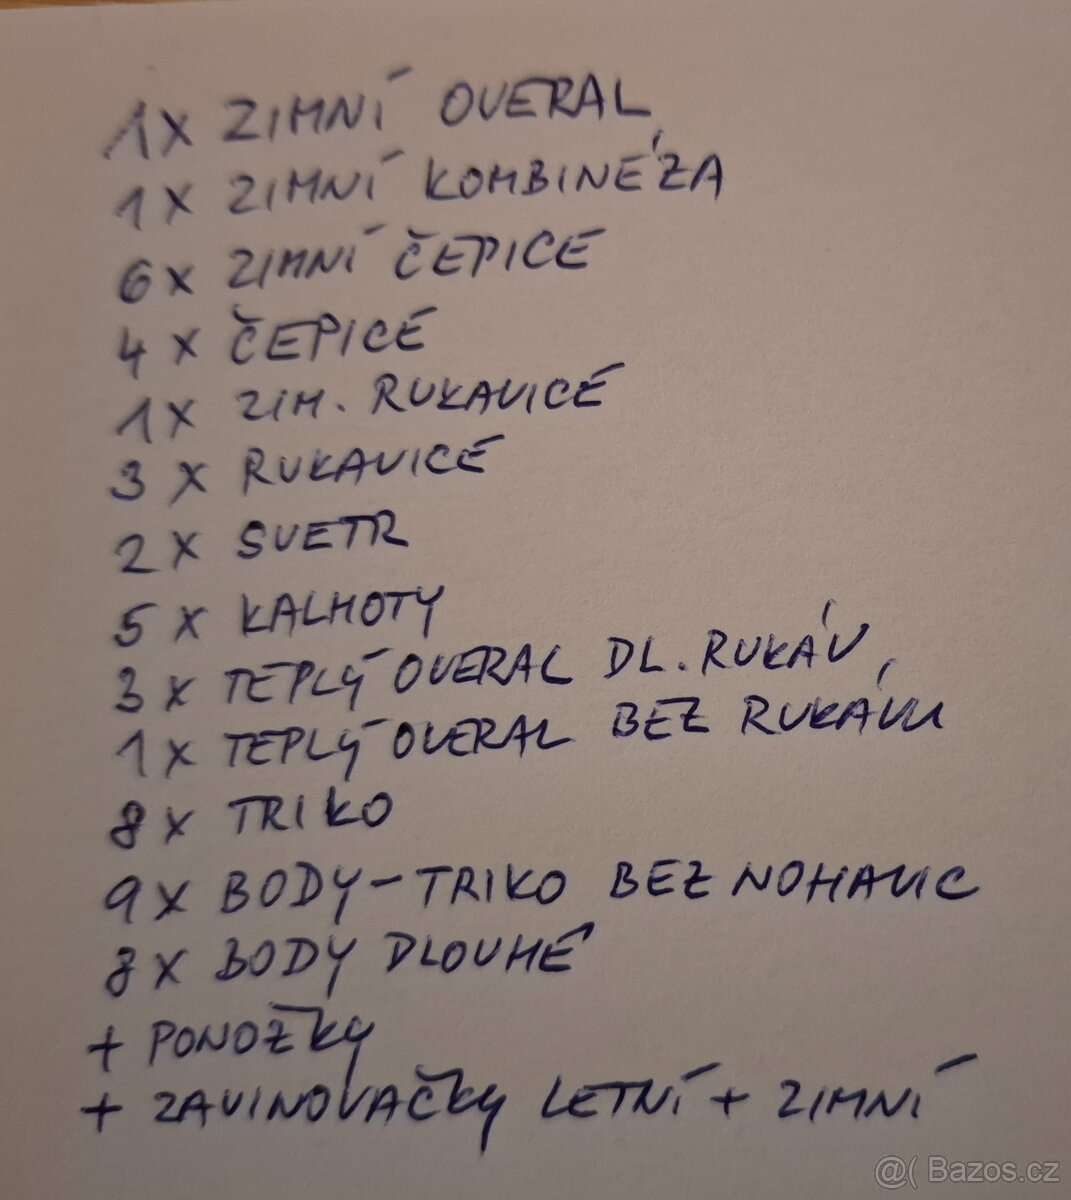 1X ZIMNÍ OVERAL
1X ZIMNÍ KOMBINÉZA
6X ZIMNÍ ČEPICE
4X ČEPICE
1X ZIM. RUKAVICE
3X RUKAVICE
2X SVETR
5X KALHOTY
3X TEPLÝ OVERAL DL. RUKÁV
1X TEPLÝ OVERAL BEZ RUKÁVU
8X TRIKO
9X BODY-TRIKO BEZ NOHAVIC
8X BODY DLOUHÉ
+ PONOŽKY
+ ZAVINOVAČKY LETNÍ + ZIMNÍ
@( Bazos.cz